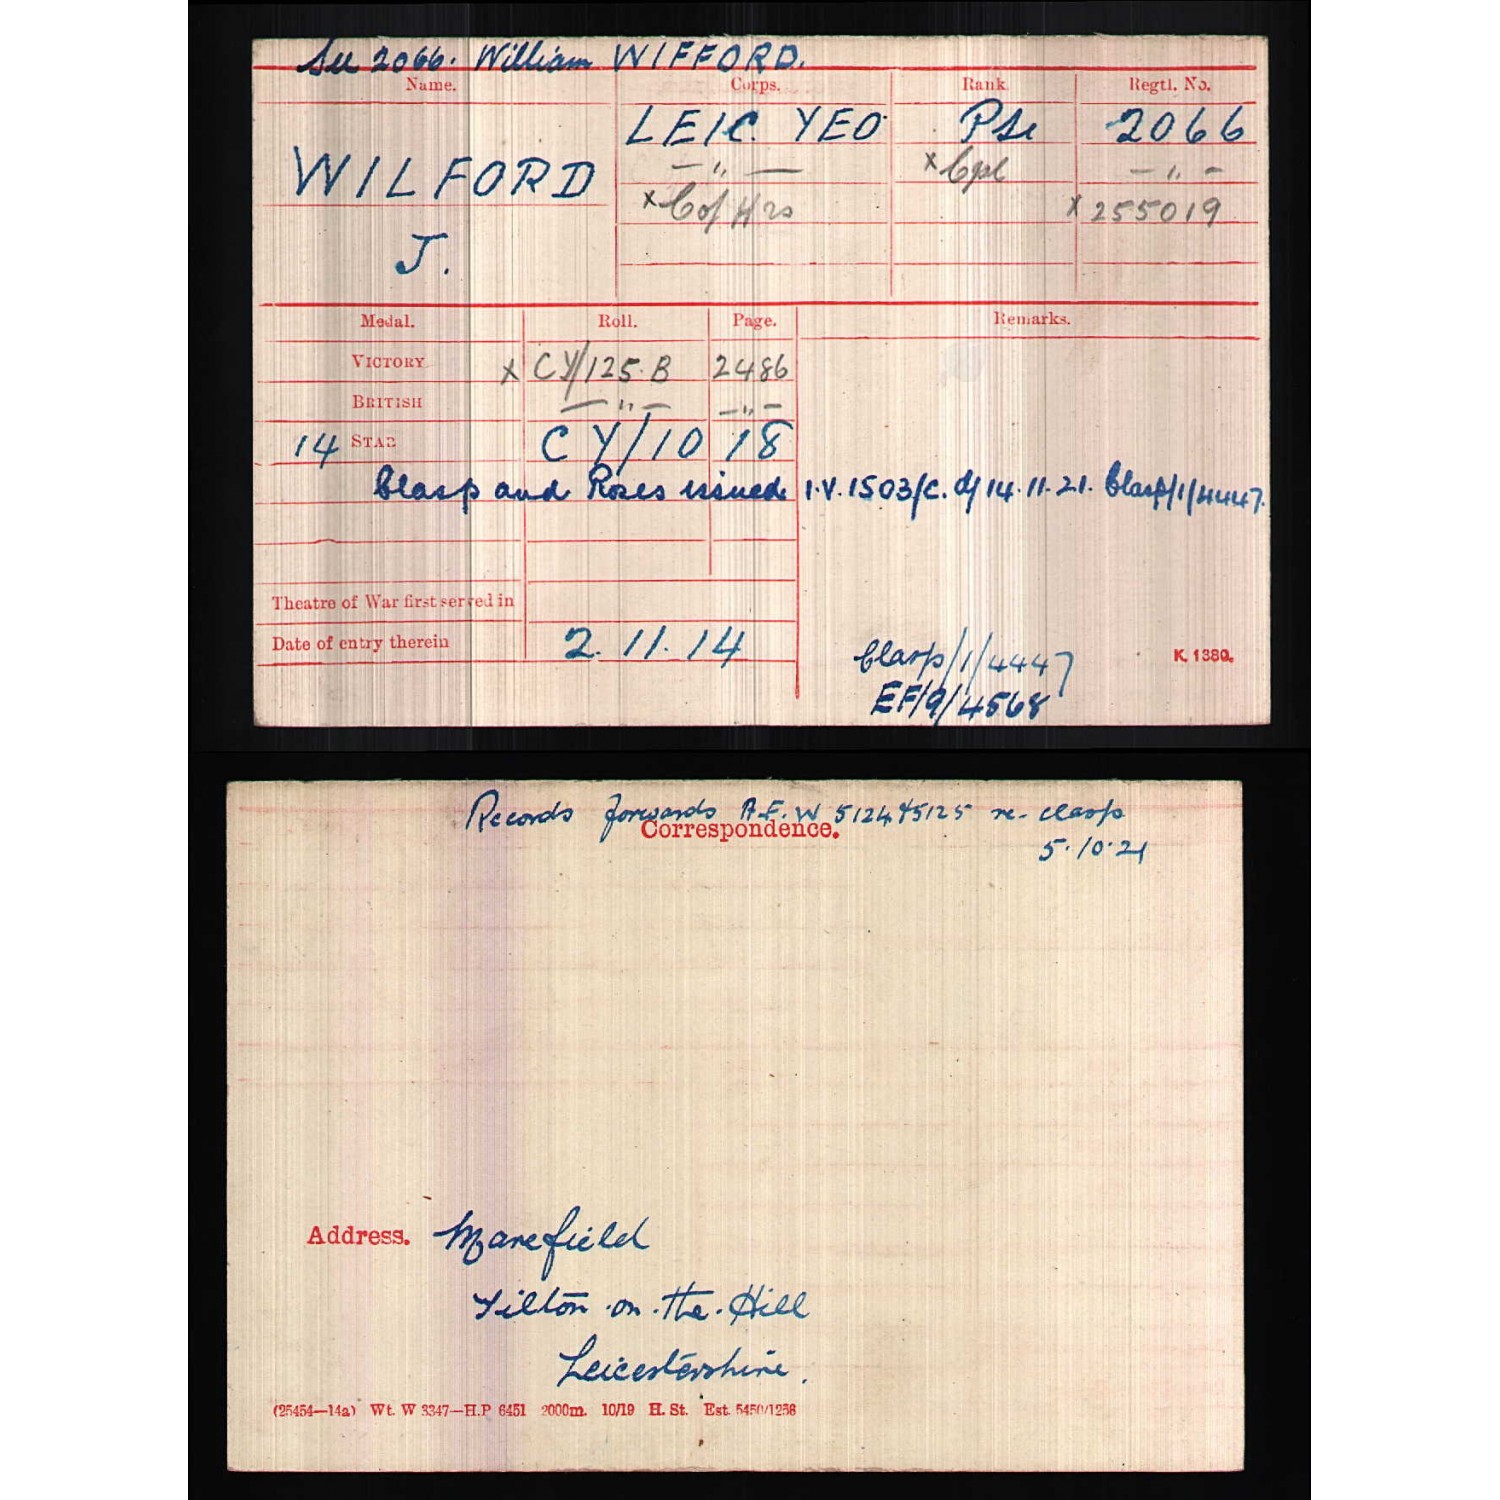 See 2066. William WIFFORD.
Name. Corps. Rank Regtl. No.
WILFORD LEIC. YEO Pte 2066
— " — x Cpl — " —
J. x C of Hrs x 255019
Medal. Roll. Page. Remarks.
VICTORY x CY/125.B 2486
BRITISH — " — — " —
14 STAR CY/10 18
Clasp and Roses issued I.V. 1503/C. d/ 14.11.21. Clasp/1/4447.
Theatre of War first served in
Date of entry therein 2.11.14
Clasp/1/4447
K. 1380.
EF/9/4568
Records forwards A.F.W 5124+5125 re- clasp
Correspondence.
5.10.21
Address. Marefield
Tilton.on.the.Hill
Leicestershire.
(25454—14a) Wt. W 3347—H.P 6451 2000m. 10/19 H. St. Est. 5450/1256